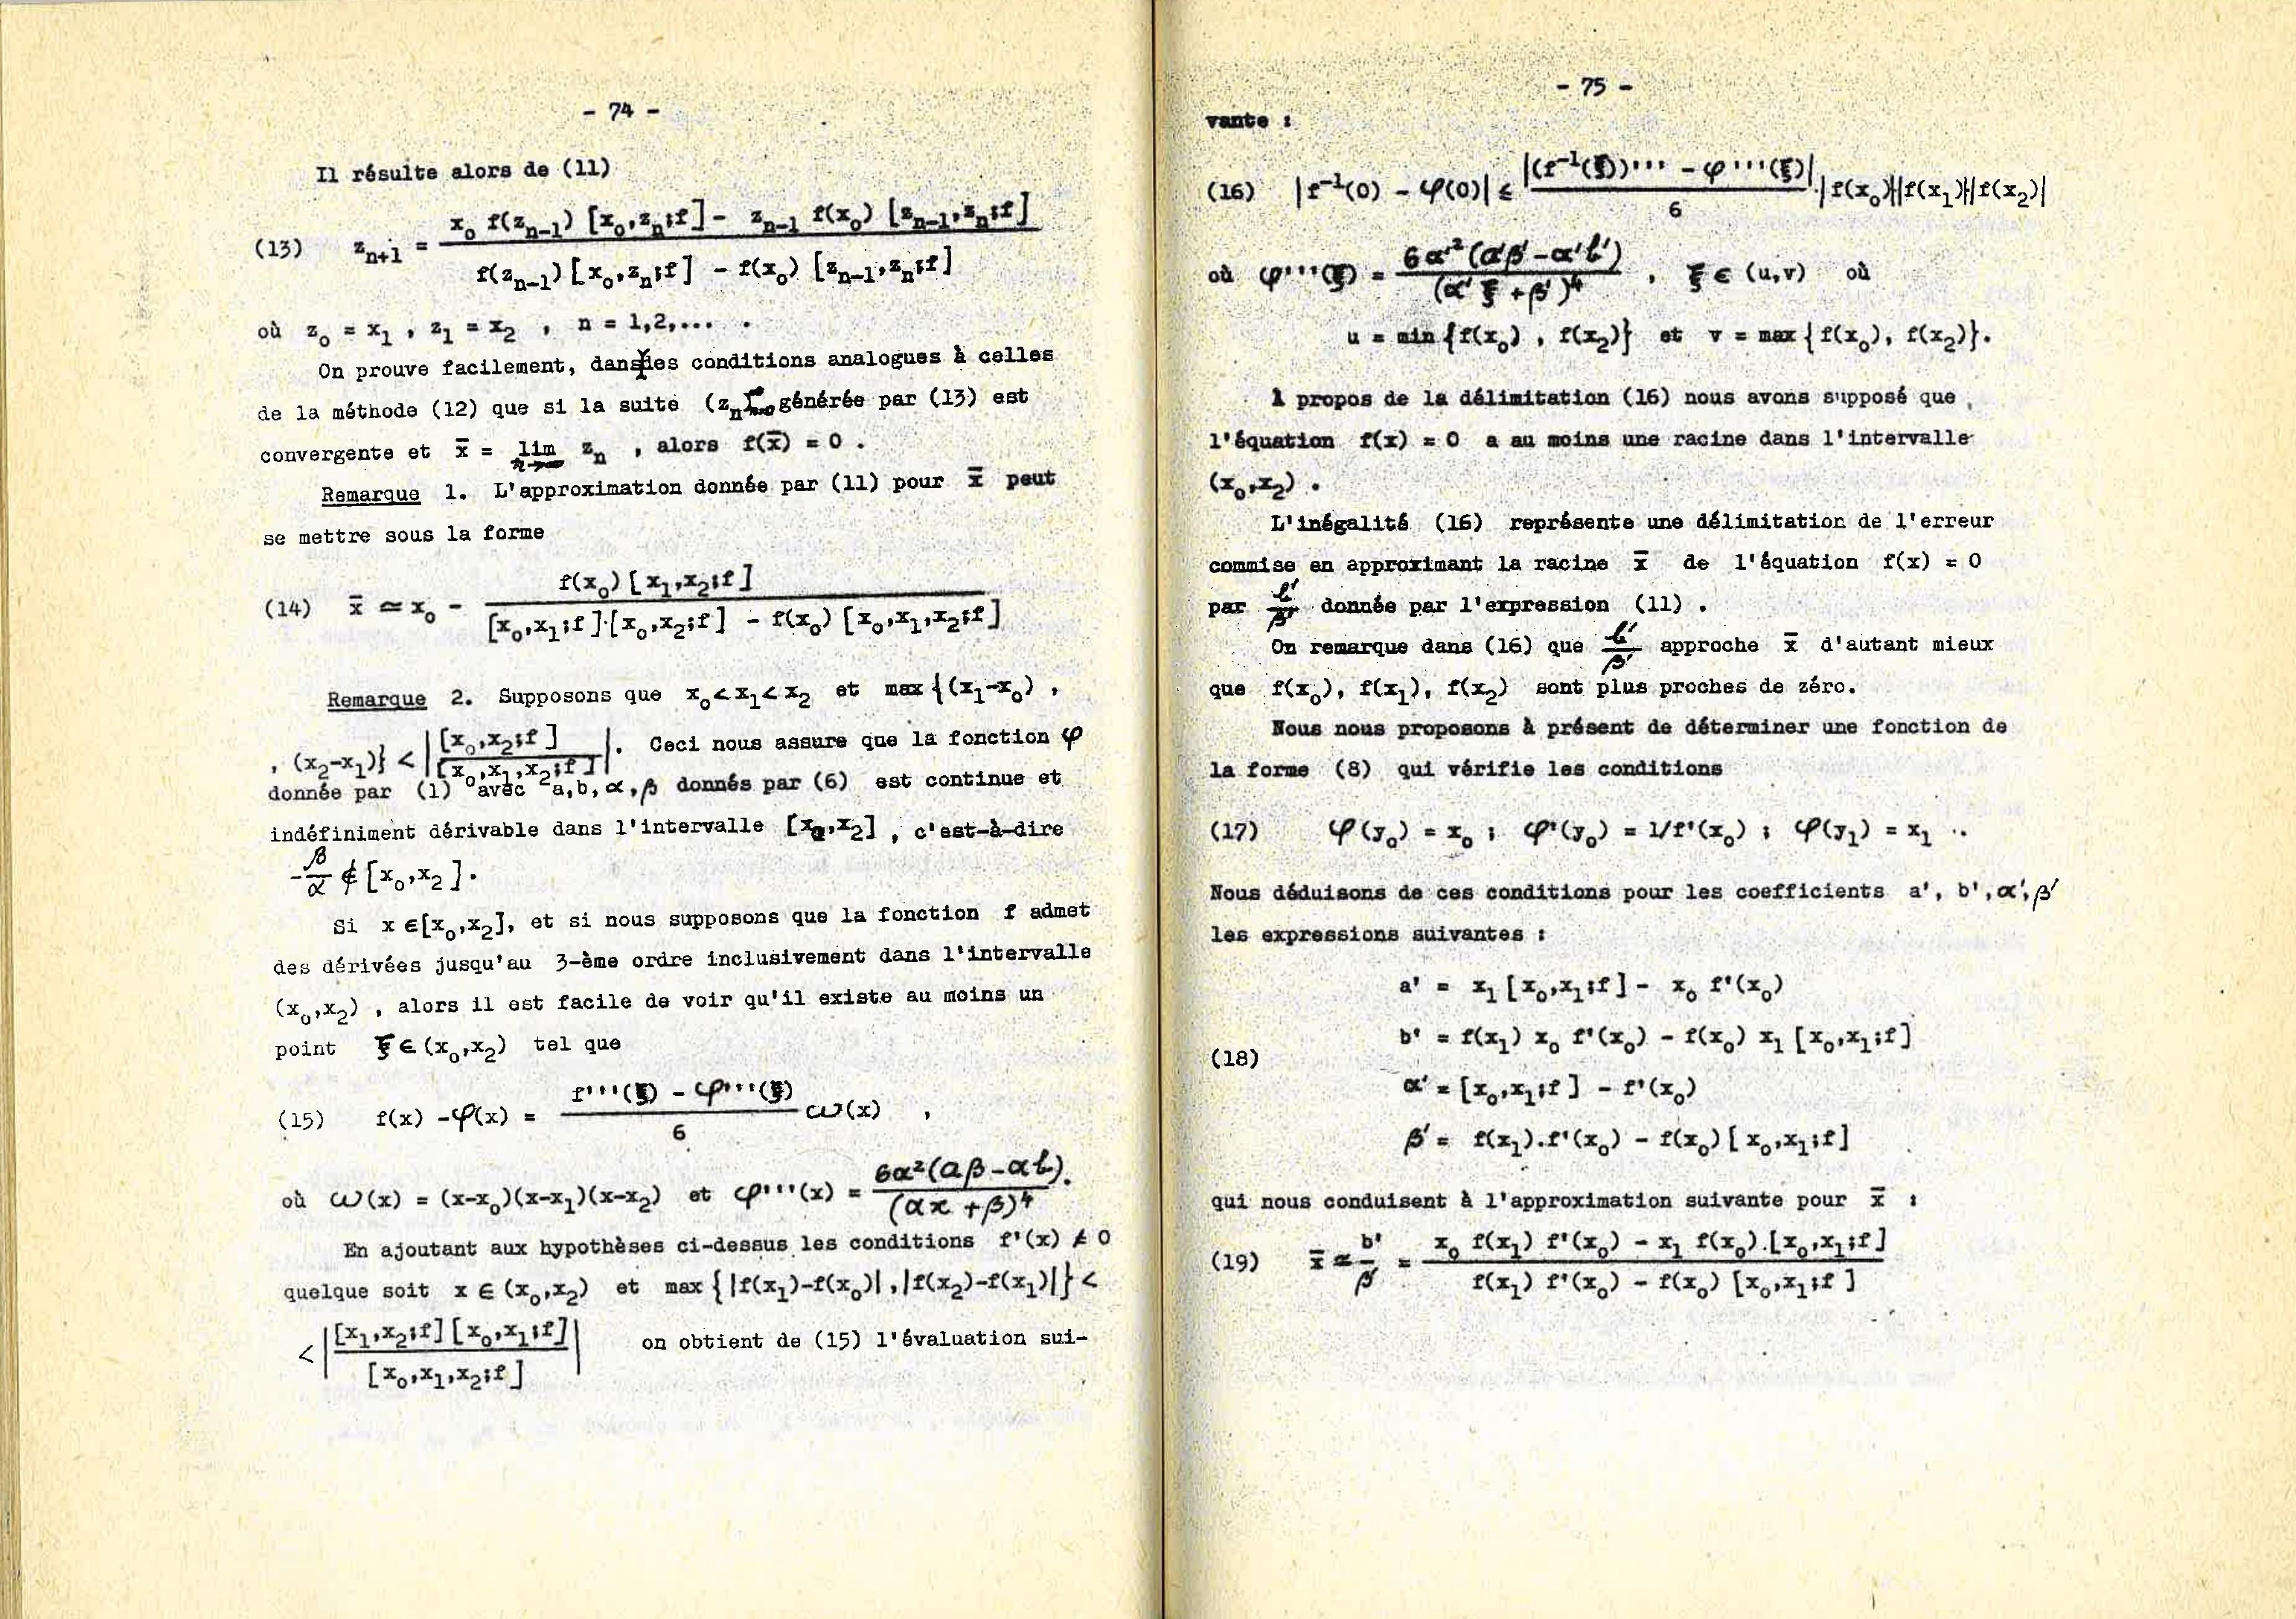 - 74 -
Il résulte alors de (11)
(13) z_{n+1} = \frac{x_0 f(z_{n-1}) [x_0,z_n;f] - z_{n-1} f(x_0) [z_{n-1},z_n;f]}{f(z_{n-1}) [x_0,z_n;f] - f(x_0) [z_{n-1},z_n;f]}
où z_0 = x_1 , z_1 = x_2 , n = 1,2,... .
On prouve facilement, dans des conditions analogues à celles
de la méthode (12) que si la suite (z_n)_{n=0}^∞ générée par (13) est
convergente et x̄ = \lim_{n→∞} z_n , alors f(x̄) = 0 .
Remarque 1. L'approximation donnée par (11) pour x̄ peut
se mettre sous la forme
(14) x̄ ≃ x_0 - \frac{f(x_0) [x_1,x_2;f]}{[x_0,x_1;f]·[x_0,x_2;f] - f(x_0) [x_0,x_1,x_2;f]}
Remarque 2. Supposons que x_0 < x_1 < x_2 et max {(x_1-x_0) ,
, (x_2-x_1)} < \left|\frac{[x_0,x_2;f]}{[x_0,x_1,x_2;f]}\right|. Ceci nous assure que la fonction φ
donnée par (1) avec a,b,α,β donnés par (6) est continue et
indéfiniment dérivable dans l'intervalle [x_0,x_2] , c'est-à-dire
-\frac{β}{α} ∉ [x_0,x_2].
Si x ∈ [x_0,x_2], et si nous supposons que la fonction f admet
des dérivées jusqu'au 3-ème ordre inclusivement dans l'intervalle
(x_0,x_2) , alors il est facile de voir qu'il existe au moins un
point ξ ∈ (x_0,x_2) tel que
(15) f(x) - φ(x) = \frac{f'''(ξ) - φ'''(ξ)}{6} ω(x) ,
où ω(x) = (x-x_0)(x-x_1)(x-x_2) et φ'''(x) = \frac{6α²(aβ-αb)}{(αx+β)^4}.
En ajoutant aux hypothèses ci-dessus les conditions f'(x) ≠ 0
quelque soit x ∈ (x_0,x_2) et max {|f(x_1)-f(x_0)| , |f(x_2)-f(x_1)|} <
< \left|\frac{[x_1,x_2;f] [x_0,x_1;f]}{[x_0,x_1,x_2;f]}\right| on obtient de (15) l'évaluation sui-
- 75 -
vante :
(16) |f^{-1}(0) - φ(0)| ≤ \frac{|(f^{-1}(ξ))''' - φ'''(ξ)|}{6} · |f(x_0)||f(x_1)||f(x_2)|
où φ'''(ξ) = \frac{6α'²(a'β'-α'b')}{(α'ξ+β')^4} , ξ ∈ (u,v) où
u = min {f(x_0) , f(x_2)} et v = max {f(x_0), f(x_2)}.
A propos de la délimitation (16) nous avons supposé que
l'équation f(x) = 0 a au moins une racine dans l'intervalle
(x_0,x_2) .
L'inégalité (16) représente une délimitation de l'erreur
commise en approximant la racine x̄ de l'équation f(x) = 0
par \frac{b'}{β'} donnée par l'expression (11) .
On remarque dans (16) que \frac{b'}{β'} approche x̄ d'autant mieux
que f(x_0), f(x_1), f(x_2) sont plus proches de zéro.
Nous nous proposons à présent de déterminer une fonction de
la forme (8) qui vérifie les conditions
(17) φ(y_0) = x_0 ; φ'(y_0) = 1/f'(x_0) ; φ(y_1) = x_1 .
Nous déduisons de ces conditions pour les coefficients a', b', α', β'
les expressions suivantes :
a' = x_1 [x_0,x_1;f] - x_0 f'(x_0)
b' = f(x_1) x_0 f'(x_0) - f(x_0) x_1 [x_0,x_1;f]
(18)
α' = [x_0,x_1;f] - f'(x_0)
β' = f(x_1).f'(x_0) - f(x_0) [x_0,x_1;f]
qui nous conduisent à l'approximation suivante pour x̄ :
(19) x̄ ≃ \frac{b'}{β'} = \frac{x_0 f(x_1) f'(x_0) - x_1 f(x_0).[x_0,x_1;f]}{f(x_1) f'(x_0) - f(x_0) [x_0,x_1;f]}